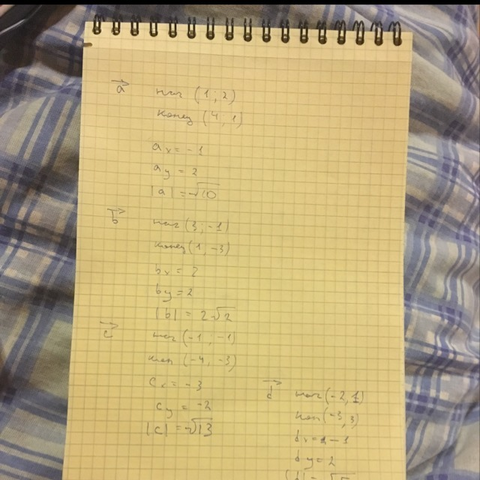 a нач (1; 2)
конец (4, 1)
ax = -1
ay = 2
|a| = √10
b нач (3, -1)
конец (1, -3)
bx = 2
by = 2
|b| = 2√2
c нач (-1, -1)
кон (-4, -3)
cx = -3
cy = -2
|c| = √13
d нач (-2, 1)
кон (-3, 3)
dx = -1
dy = 2
|d| = √5